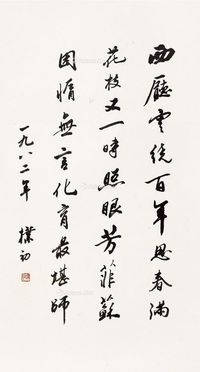 西廳雲繞百年思春滿
花枝又一時照眼芳菲蘇
困惰無言化育最堪師
一九八二年 樸初